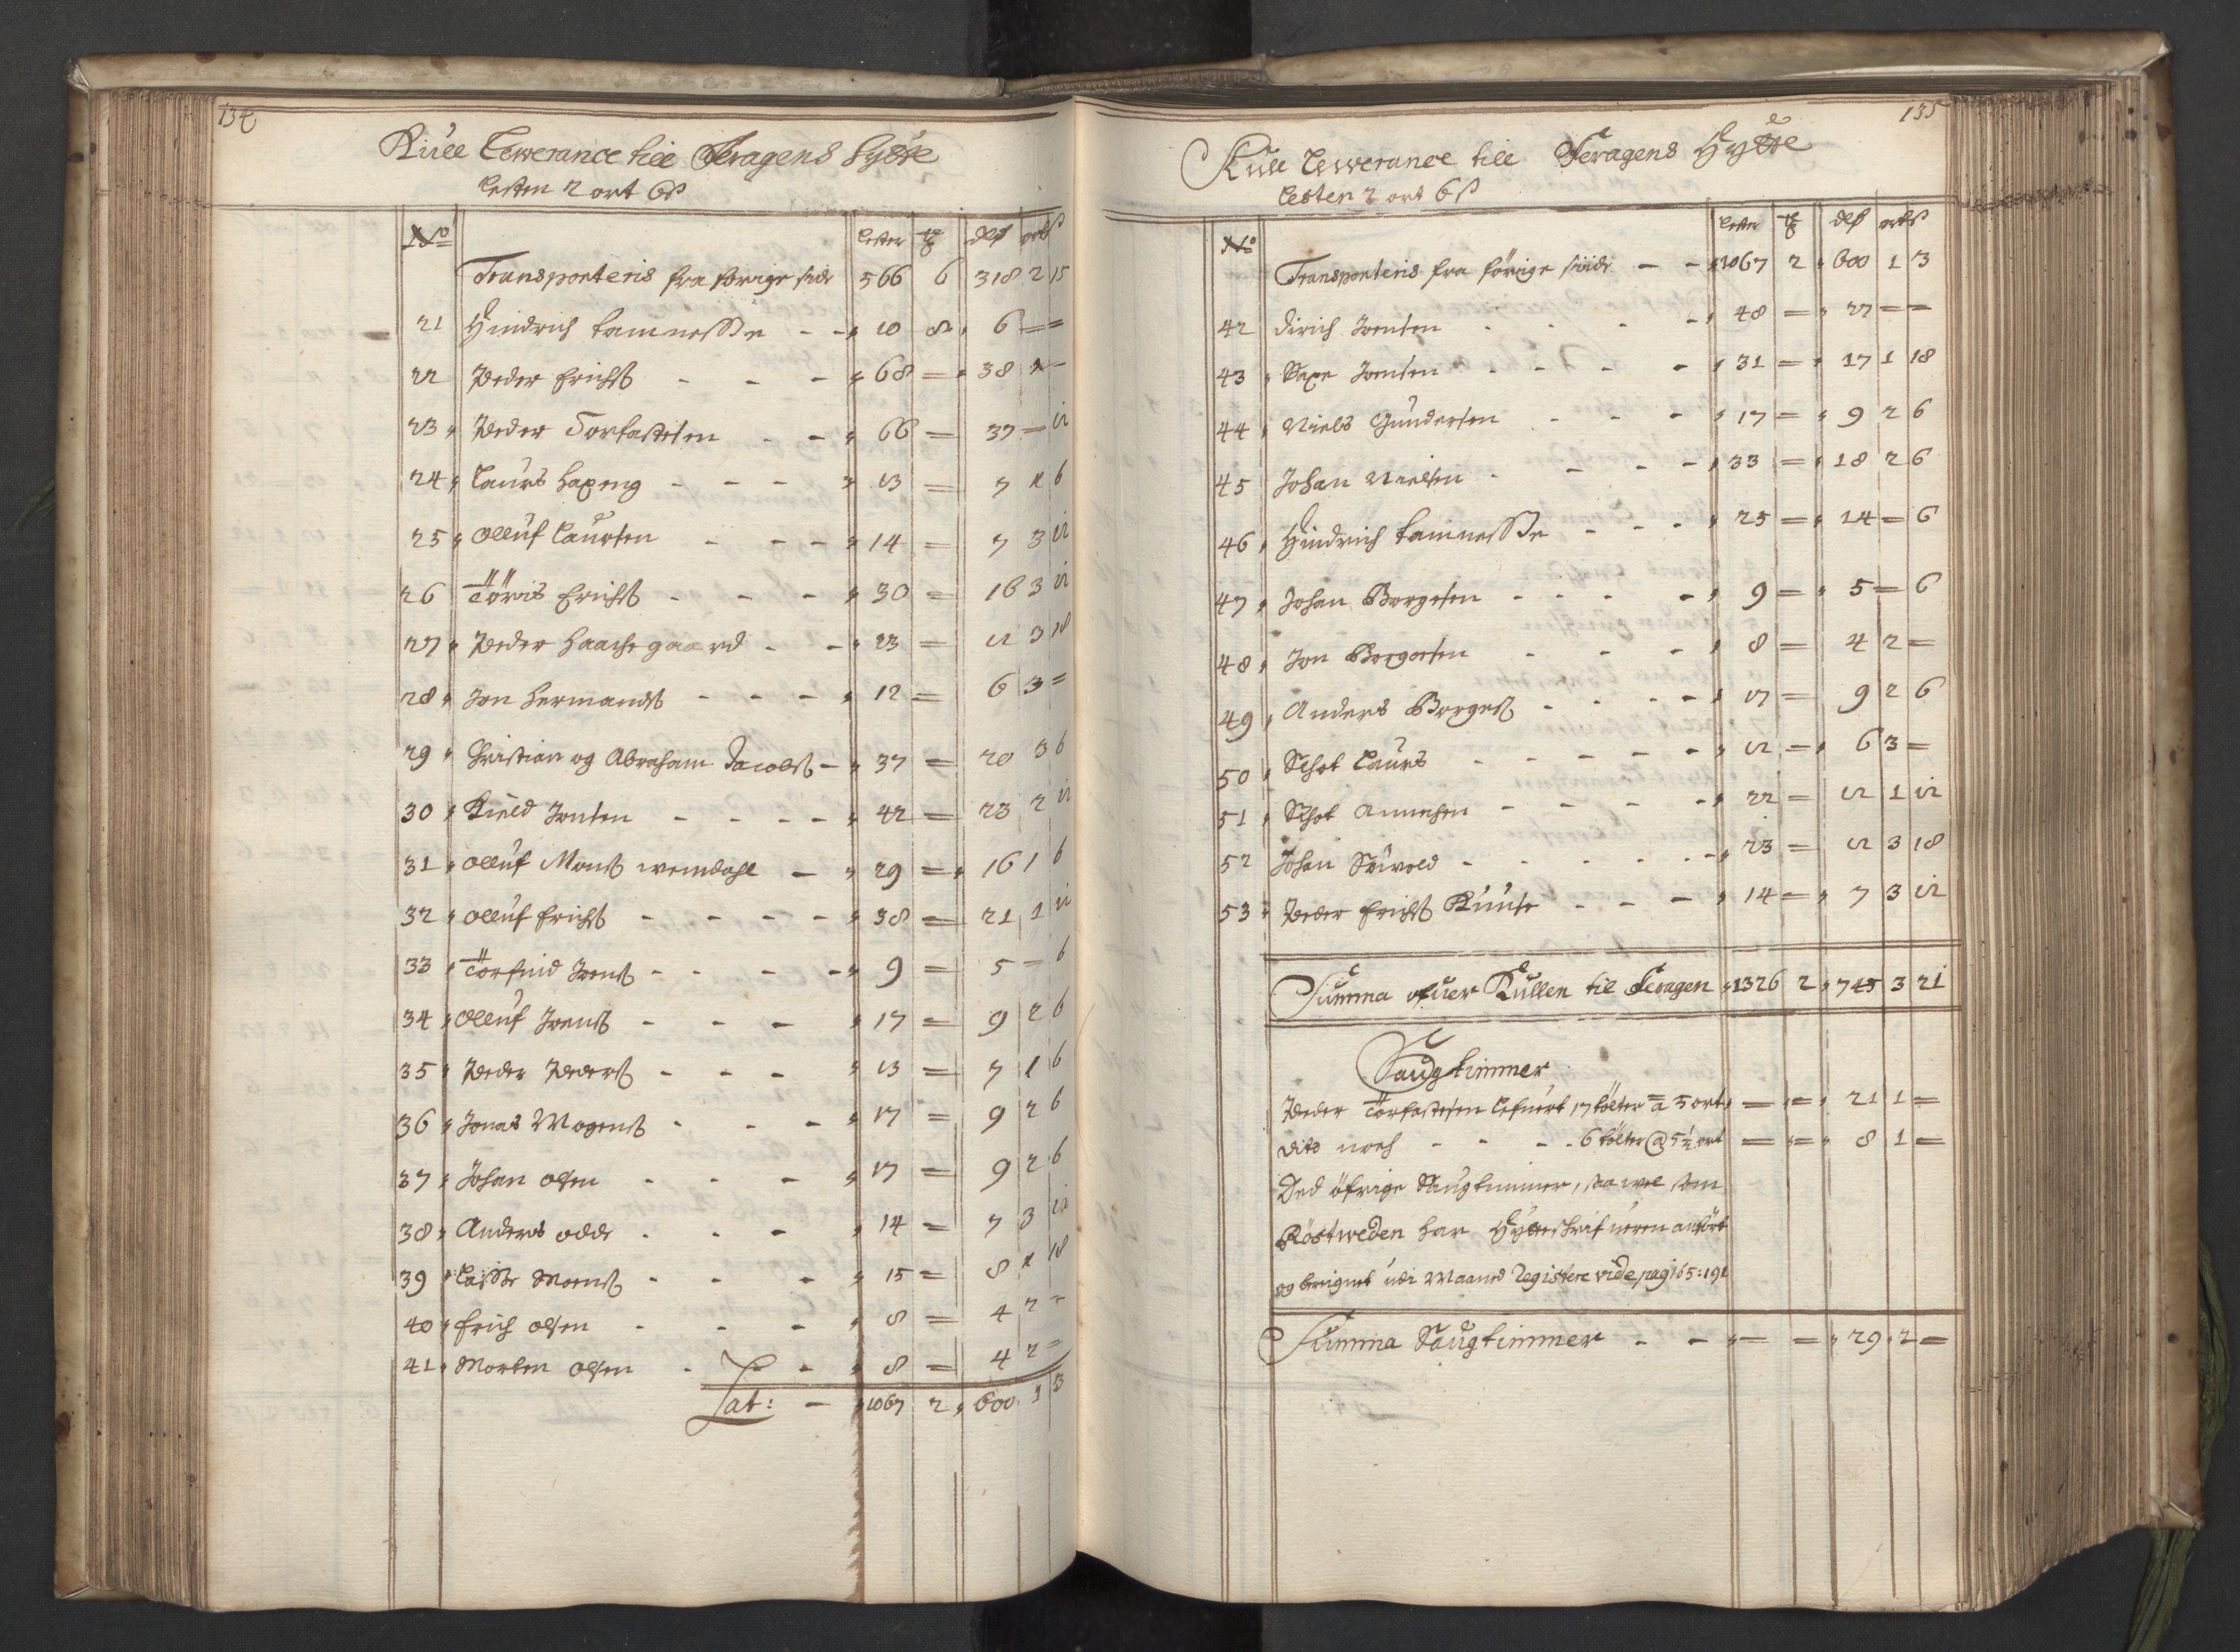 134
Kull Lewerance till Feragens hytte
Lesten 2 ort 6 ß
No Lester tr dlr ort ß
Transporteris fra forrige side 566 6 318 2 15
21 Hindrich tamnesse - - 10 8 6 = =
22 Peder Erichß - - - 68 = 38 1 -
23 Peder Torfastesen - - 66 = 37 = 12
24 Laurs hapeng - - - 13 = 7 1 6
25 Olluf Laursen - - - 14 = 7 3 12
26 Törris Erichß - - - 30 = 16 3 12
27 Peder haachegaard - - 23 = 12 3 18
28 Jon hermandß - - - 12 = 6 3 =
29 Christian og Abraham Jacobß - 37 = 20 3 6
30 Kield Jonsen - - - - 42 = 23 2 12
31 Olluf Monß wemdahl - 29 = 16 1 6
32 Olluf Erichß - - - - 38 = 21 1 12
33 Törfind Joenß - - - - 9 = 5 = 6
34 Olluf Joenß - - - 17 = 9 2 6
35 Peder Pederß - - - 13 = 7 1 6
36 Jonas Mogenß - - - 17 = 9 2 6
37 Johan olsen - - - 17 = 9 2 6
38 Anders odde - - - 14 = 7 3 12
39 Lasse Moenß - - - 15 = 8 1 18
40 Erich olsen - - - 8 = 4 2 =
41 Morten olsen - - - 8 = 4 2 =
Lat: - 1067 2 600 1 3
135
Kull Lewerance till Feragens Hytte
Lesten 2 ort 6 ß
No Lester tr dlr ort ß
Transporteris fra förrige siide - - 1067 2 600 1 3
42 Dirich Joensen - - - - 48 = 27 = =
43 Saxe Joensen - - - - 31 = 17 1 18
44 Niels Gundersen - - - 17 = 9 2 6
45 Johan Nielsen - - - - 33 = 18 2 6
46 Hindrich tamnesse - - - 25 = 14 = 6
47 Johan Borgesen - - - - 9 = 5 = 6
48 Jon Borgesen - - - 8 = 4 2 =
49 Anders Borgeß - - - - 17 = 9 2 6
50 Schot Laurs - - - - - 12 = 6 3 =
51 Schot - - - - 22 = 12 1 12
52 Johan - - - - - - 23 = 12 3 18
53 Peder Erichß - - - 14 = 7 3 12
Summa ofuer Kullen til Feragen 1326 2 745 3 21
Saugtimmer
Peder Törfastesen Lefuert 17 tölter a 5 ort = = 21 1 =
dito noch - - - - 6 tölter @ 5½ ort = = 8 1 =
Ded öfrige Saugtimmer, saa wel som
Röstweden har Hytteschrifueren anfört
og beregnet udi Maaned Registere vide pag 165: 191
Summa Saugtimmer - - = = 29 2 =